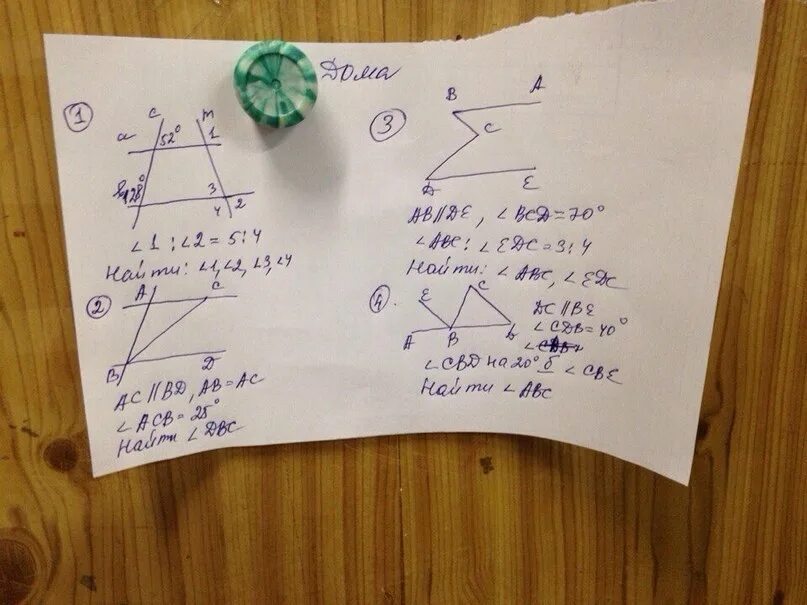 Дома
1
c
m
a
52°
1
b
128°
3
2
4
∠1 : ∠2 = 5 : 4
Найти: ∠1, ∠2, ∠3, ∠4
2
A
C
B
D
AC || BD, AB = AC
∠ACB = 25°
Найти ∠DBC
3
B
A
C
D
E
AB || DE, ∠BCD = 70°
∠ABC : ∠EDC = 3 : 4
Найти: ∠ABC, ∠EDC
4.
E
C
A
B
D
DC || BE
∠CDB = 40°
∠CBD на 20° б ∠CBE
Найти ∠ABC